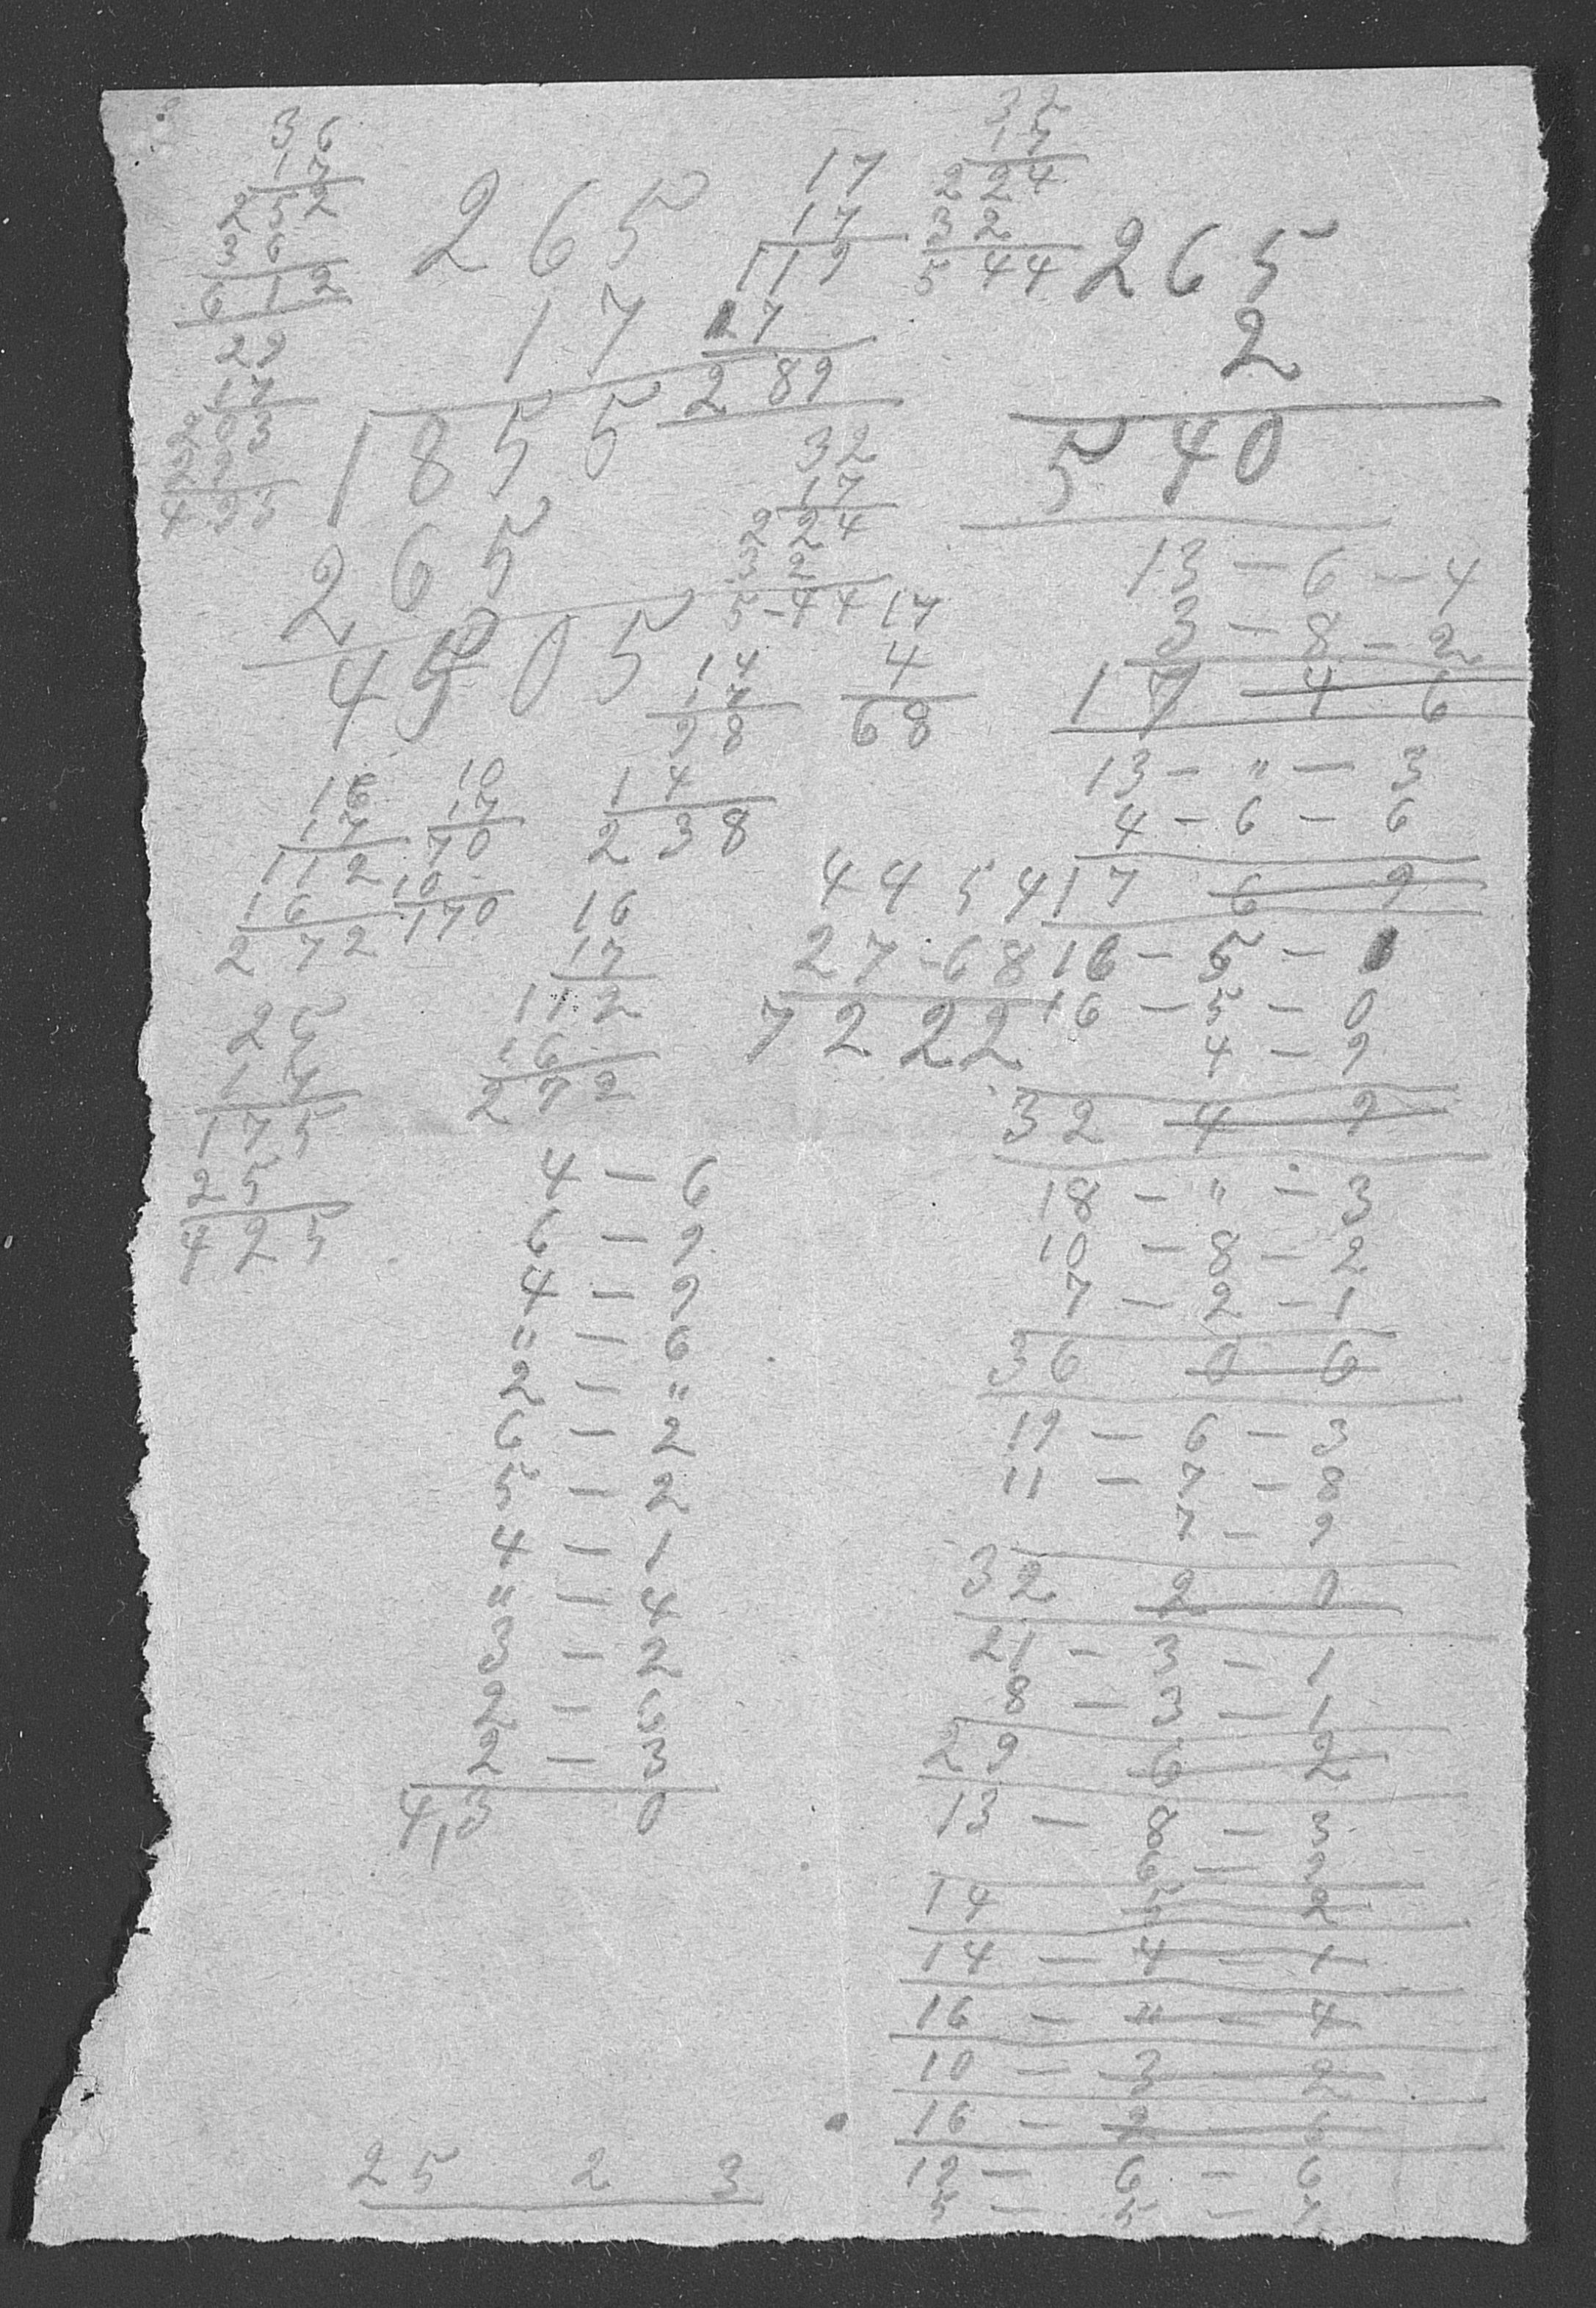 36
17
252
36
612
29
17
203
29
493
265
17
1855
265
4505
17
17
119
17
289
32
17
224
32
544
32
17
224
32
5-44
17
4
68
14
17
98
14
238
265
2
540
16
17
112
16
272
10
17
70
10
170
16
17
112
16
272
25
17
175
25
425
44 54
27-68
7222
4 — 6
6 — 9
4 — 9
" — 6
2 — "
6 — 2
5 — 2
4 — 1
" — 4
3 — 2
2 — 6
2 — 3
4,3 0
25 2 3
13 — 6 — 4
3 — 8 — 2
17 4 6
13 — " — 3
4 — 6 — 6
17 6 9
16 — 5 —
16 — 5 — 0
4 — 9
32 4 9
18 — " — 3
10 — 8 — 2
7 — 2 — 1
36 0 6
19 — 6 — 3
11 — 7 — 8
7 — 9
32 2 0
21 — 3 — 1
8 — 3 — 1
29 6 2
13 — 8 — 3
6 — 9
14 5 2
14 — 4 — 1
16 — " — 4
10 — 3 — 2
16 — 2 — 6
19 — 6 — 6
5 — 5 — 7